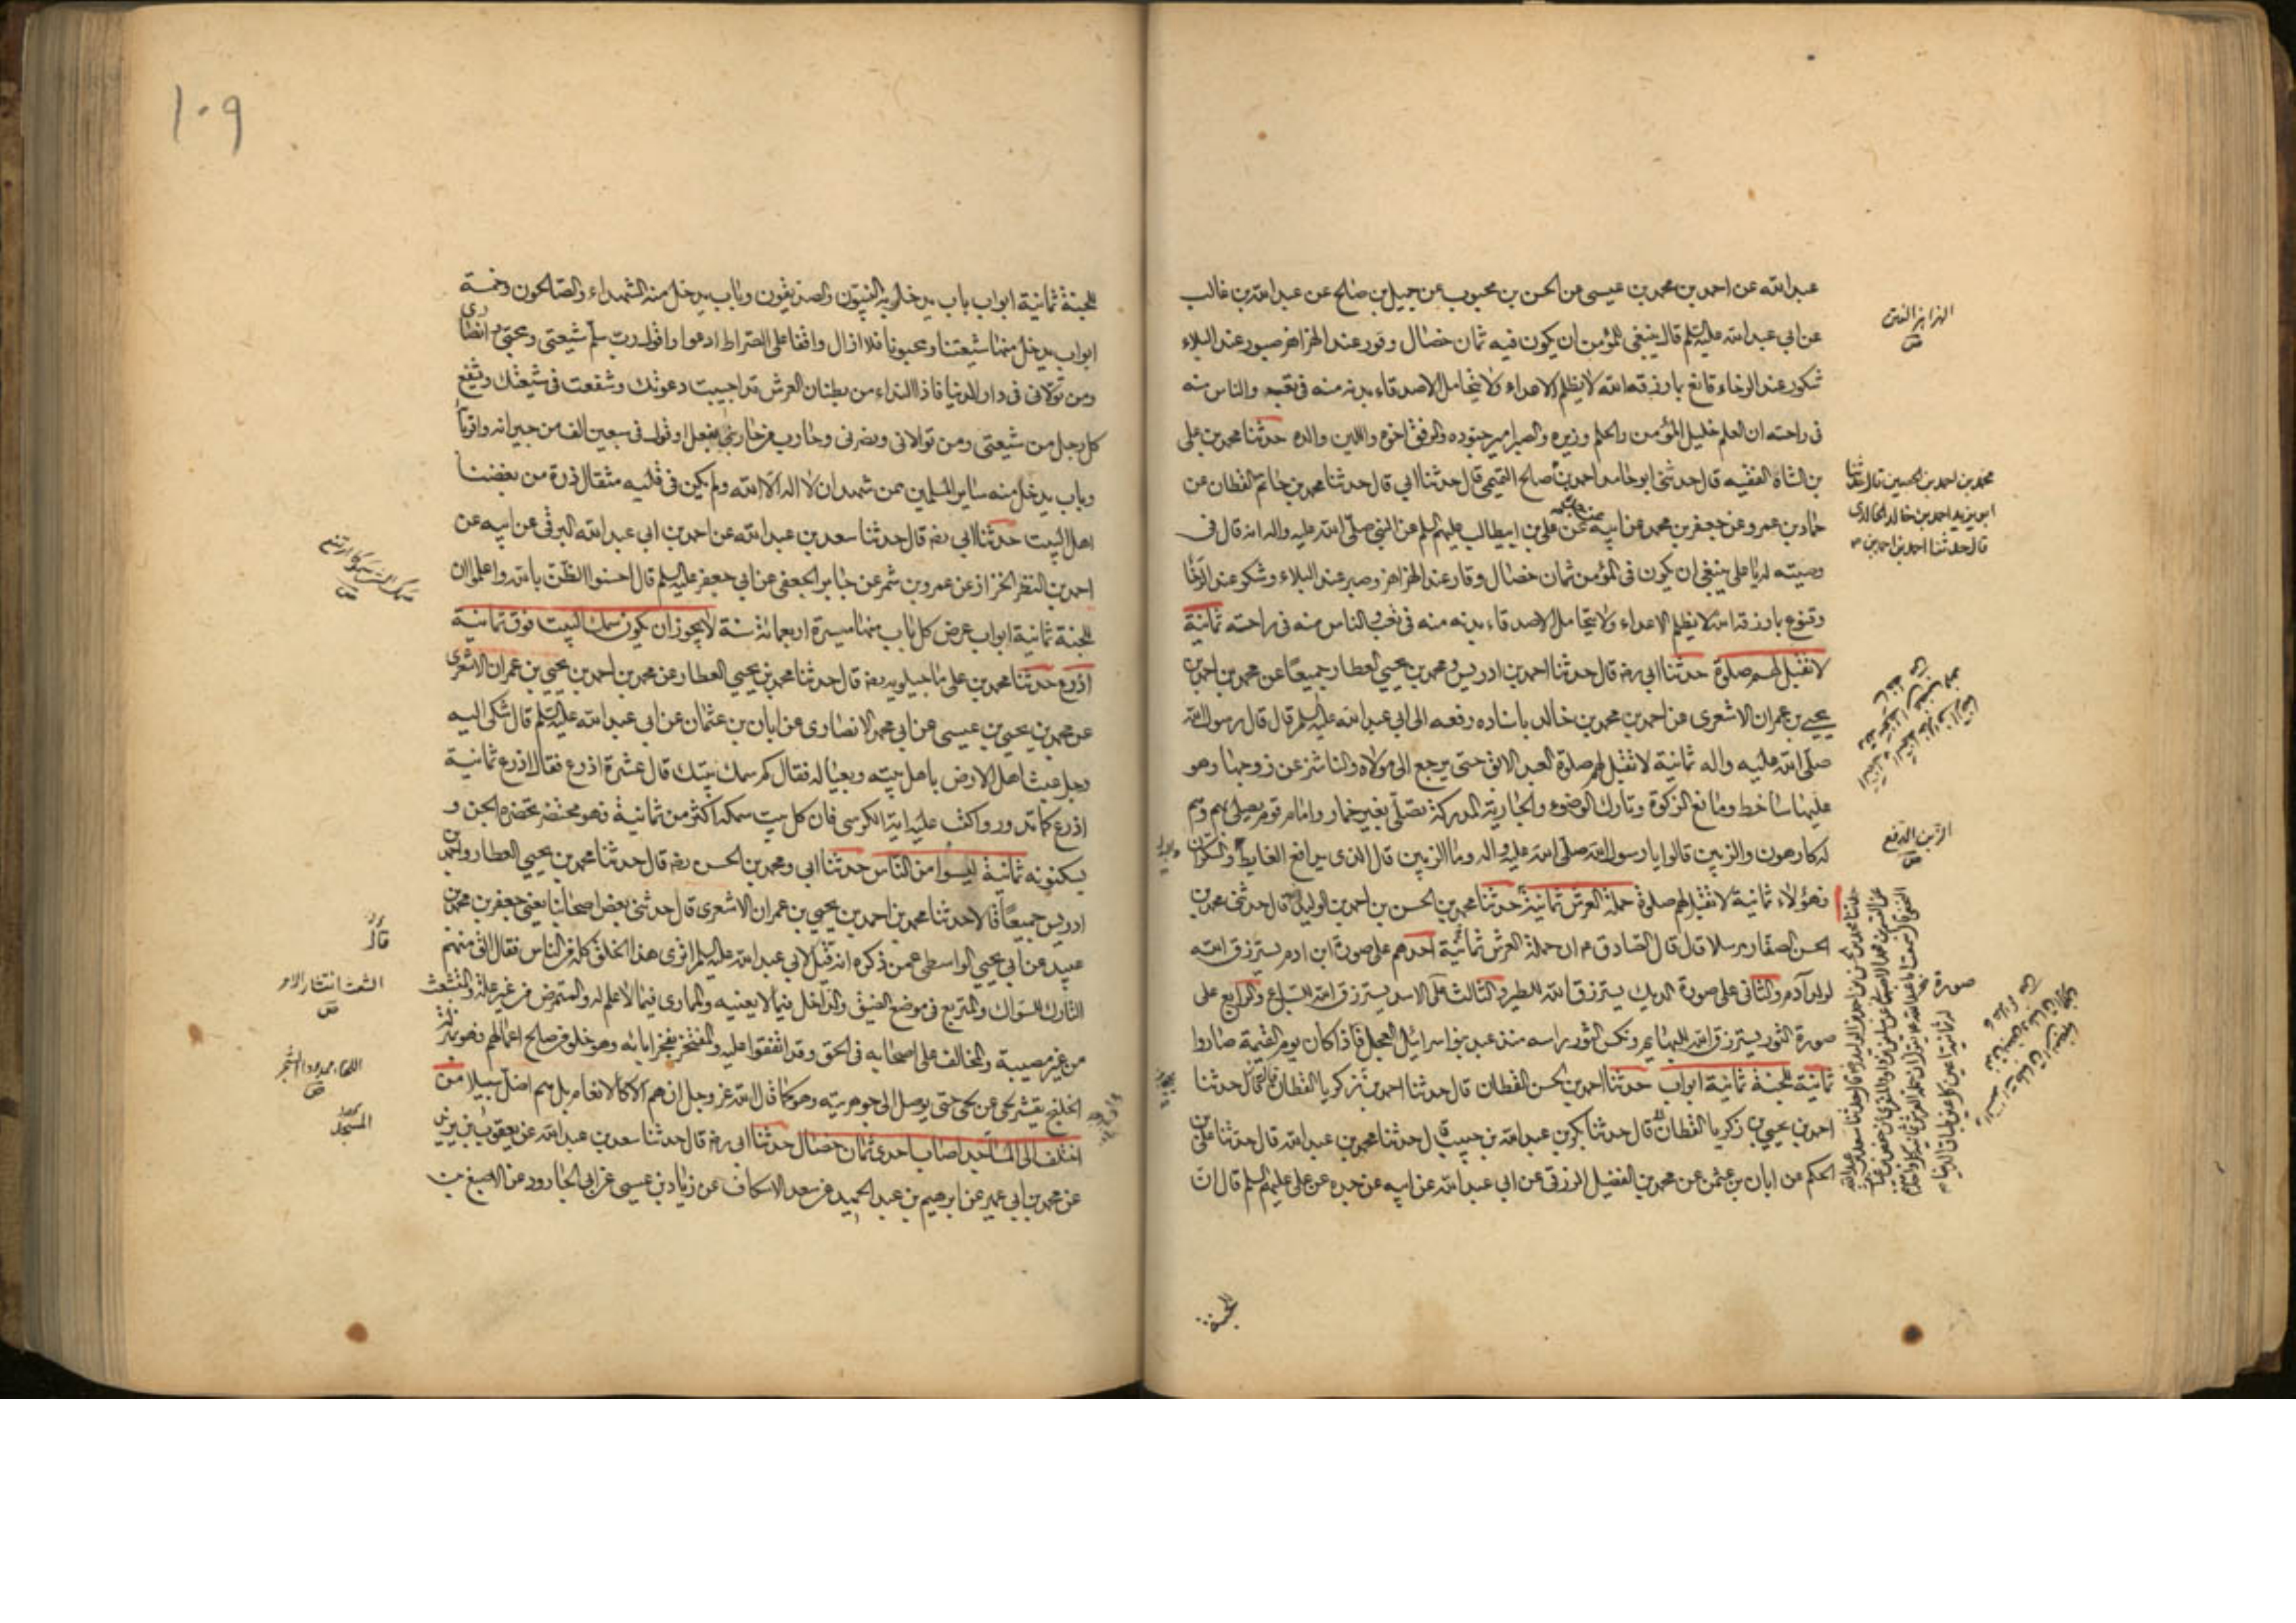 عبد الله عن احمد بن محمد بن عيسى عن الحسن بن محبوب عن جميل بن صالح عن عبد الله بن غالب
عن ابي عبد الله عليه السلم قال ينبغي للمؤمن ان يكون فيه ثمان خصال وقور عند الهزاهز صبور عند البلاء
شكور عند الرخاء قانع بما رزقه الله لا يظلم الاعداء ولا يتحامل الاصدقاء بدنه منه في تعب والناس منه
في راحته ان العلم خليل المؤمن والحلم وزيره والصبر امير جنوده والرفق اخوه واللين والده حدثنا محمد بن علي
بن الشاه الفقيه قال حدثني ابو حامد احمد بن صالح التميمي قال حدثنا ابي قال حدثنا محمد بن حاتم القطان عن
حماد بن عمرو عن جعفر بن محمد عن ابيه عن جده عن علي بن ابيطالب عليهم السلم عن النبي صلى الله عليه واله انه قال في
وصيته له يا علي ينبغي ان يكون في المؤمن ثمان خصال وقار عند الهزاهز وصبر عند البلاء وشكر عند الرخا
وقنوع بما رزقه الله لا يظلم الاعداء ولا يتحامل الاصدقاء بدنه منه في تعب والناس منه في راحته ثمانية
لا تقبل لهم صلوة حدثنا ابي رضه قال حدثنا احمد بن ادريس ومحمد بن يحيى العطار جميعًا عن محمد بن احمد بن
يحيى بن عمران الاشعري عن احمد بن محمد بن خالد باسناده رفعه الى ابي عبد الله عليه السلم قال قال رسول الله
صلى الله عليه واله ثمانية لا تقبل لهم صلوة العبد الابق حتى يرجع الى مولاه والناشز عن زوجها وهو
عليها ساخط ومانع الزكوة وتارك الوضوء والجارية المدركة تصلي بغير خمار وامام قوم يصلي بهم وهم
له كارهون والزبين قالوا يا رسول الله صلى الله عليه واله وما الزبين قال الذي يدافع الغايط والسكران
فهؤلاء ثمانية لا تقبل لهم صلوة حملة العرش ثمانية حدثنا محمد بن الحسن بن احمد بن الوليد قال حدثني محمد بن
الحسن الصفار مرسلا قال قال الصادق ع ان حملة العرش ثمانية احدهم على صورة ابن ادم يسترزق الله
لولد آدم والثاني على صورة الديك يسترزق الله للطير والثالث على الاسد يسترزق الله للسباع والرابع على
صورة الثور يسترزق الله للبهايم ونكس الثور راسه منذ عبد بنوا اسرائيل العجل فاذا كان يوم القيمة صاروا
ثمانية للجنة ثمانية ابواب حدثنا احمد بن الحسن القطان قال حدثنا احمد بن زكريا القطان قال حدثنا
احمد بن يحيى بن زكريا القطان قال حدثنا بكر بن عبد الله بن حبيب قال حدثنا محمد بن عبد الله قال حدثنا علي بن
الحكم عن ابان بن عثمن عن محمد بن الفضيل الزرقي عن ابي عبد الله عن ابيه عن جده عن علي عليهم السلم قال ان
للجنة
محمد بن احمد بن الحسين قال حدثنا
ابو يزيد احمد بن خالد الخالدي
قال حدثنا احمد بن احمد بن
الزبن الدفع
١٠٩
للجنة ثمانية ابواب باب يدخل منه النبيون والصديقون وباب يدخل منه الشهداء والصالحون وخمسة
ابواب يدخل منها شيعتنا ومحبونا فلا ازال واقفا على الصراط ادعوا واقول رب سلم شيعتي ومحبي وانصاري
ومن تولاني في دار الدنيا فاذا النداء من بطنان العرش قد اجيبت دعوتك وشفعت في شيعتك ويشفع
كل رجل من شيعتي ومن تولاني ونصرني وحارب من حاربني بفعل او قول في سبعين الف من جيرانه واقربا
وباب يدخل منه ساير المسلمين ممن شهد ان لا اله الا الله ولم يكن في قلبه مثقال ذرة من بغضنا
اهل البيت حدثنا ابي رضه قال حدثنا سعد بن عبد الله عن احمد بن ابي عبد الله البرقي عن ابيه عن
احمد بن النضر الخزاز عن عمرو بن شمر عن جابر الجعفي عن ابي جعفر عليه السلم قال احسنوا الظن بالله واعلموا ان
للجنة ثمانية ابواب عرض كل باب منها مسيرة اربعمائة سنة لا يجوز ان يكون سمك البيت فوق ثمانية
اذرع حدثنا محمد بن علي ماجيلويه رضه قال حدثنا محمد بن يحيى العطار عن محمد بن احمد بن يحيى بن عمران الاشعري
عن محمد بن يحيى بن عيسى عن ابي محمد الانصاري عن ابان بن عثمان عن ابي عبد الله عليه السلم قال شكى اليه
رجل عبث اهل الارض باهل بيته وبعياله فقال كم سمك بيتك قال عشرة اذرع فقال اذرع ثمانية
اذرع كما تدور واكتب عليه اية الكرسي فان كل بيت سمكه اكثر من ثمانية فهو محتضر تحضره الجن و
يسكنونه ثمانية ليسوا من الناس حدثنا ابي ومحمد بن الحسن رضه قال حدثنا محمد بن يحيى العطار واحمد بن
ادريس جميعًا قالا حدثنا محمد بن احمد بن يحيى بن عمران الاشعري قال حدثني بعض اصحابنا يعني جعفر بن محمد بن
عبيد عن ابي يحيى الواسطي عمن ذكره انه قيل لابي عبد الله عليه السلم اترى هذا الخلق كله من الناس فقال الق منهم
التارك للسواك والمتربع في موضع الضيق والداخل فيما لا يعنيه والمماري فيما لا علم له والمتمرض من غير علة والمتشعث
من غير مصيبة والمخالف على اصحابه في الحق وقد اتفقوا عليه والمفتخر يفخر بابائه وهو خلو من صالح اعمالهم فهو بمنزلة
الخلنج يقشر لحى عن لحى حتى يوصل الى جوهريته وهو كما قال الله عز وجل ان هم الا كالانعام بل هم اضل سبيلا من
اختلف الى المساجد اصاب احدى ثمان خصال حدثنا ابي رضه قال حدثنا سعد بن عبد الله عن يعقوب بن يزيد
عن محمد بن ابي عمير عن ابرهيم بن عبد الحميد عن سعد الاسكاف عن زياد بن عيسى عن ابي الجارود عن الاصبغ بن
الشعث انتشار الامر
المسجد